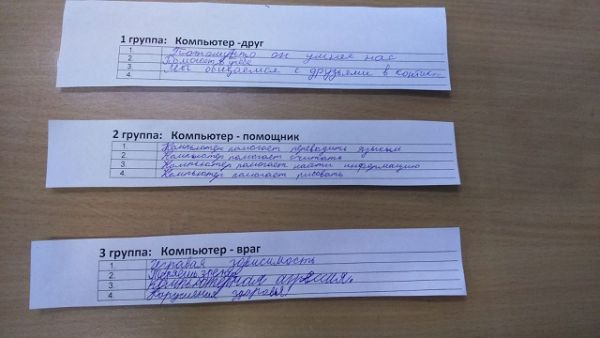 1 группа: Компьютер -друг
1. Потому что он умнее нас
2. Помогает
3. Мы общаемся с друзьями в контакте
4.
2 группа: Компьютер - помощник
1. Компьютер помогает переводить языки
2. Компьютер помогает считать
3. Компьютер помогает найти информацию
4. Компьютер помогает рисовать
3 группа: Компьютер - враг
1. Игровая зависимость
2. зрения
3. Компьютерная агрессия.
4. Нарушения здоровья!